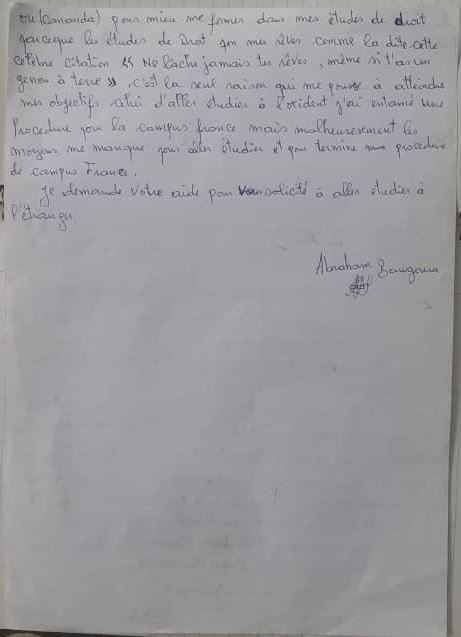 ou (Cananda) pour mieu me former dans mes études de droit
parceque les études de Droit son mes rêves comme la dite cette
célèbre citation << Ne lache jamais tes rêves, même si t'as un
genou à terre >> c'est la seul raison qui me pousse à atteindre
mes objectifs celui d'aller étudier à l'occident j'ai entamé une
Procedure pour la campus france mais malheureusement les
moyens me manque pour aller étudier et pour terminé ma procedure
de campus France.
Je demande votre aide pour solicité à aller étudier à
l'étranger
Abraham Bangoura